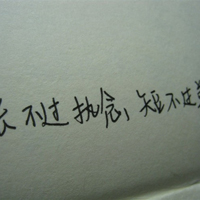 长不过执念,短不过